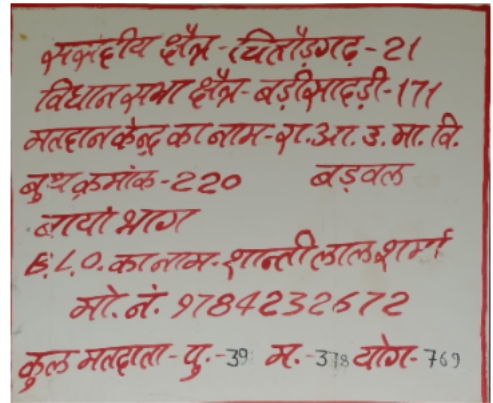 संसदीय क्षैत्र-चितौड़गढ़-21
विधानसभा क्षैत्र-बड़ीसादड़ी-171
मतदान केन्द्र का नाम-रा.आ.उ.मा.वि.
बुथ क्रमांक-220 बड़वल
बायां भाग
B.L.O. का नाम-शान्तीलाल शर्मा
मो. नं. 9784232672
कुल मतदाता-पु.-391 म.-378 योग-769